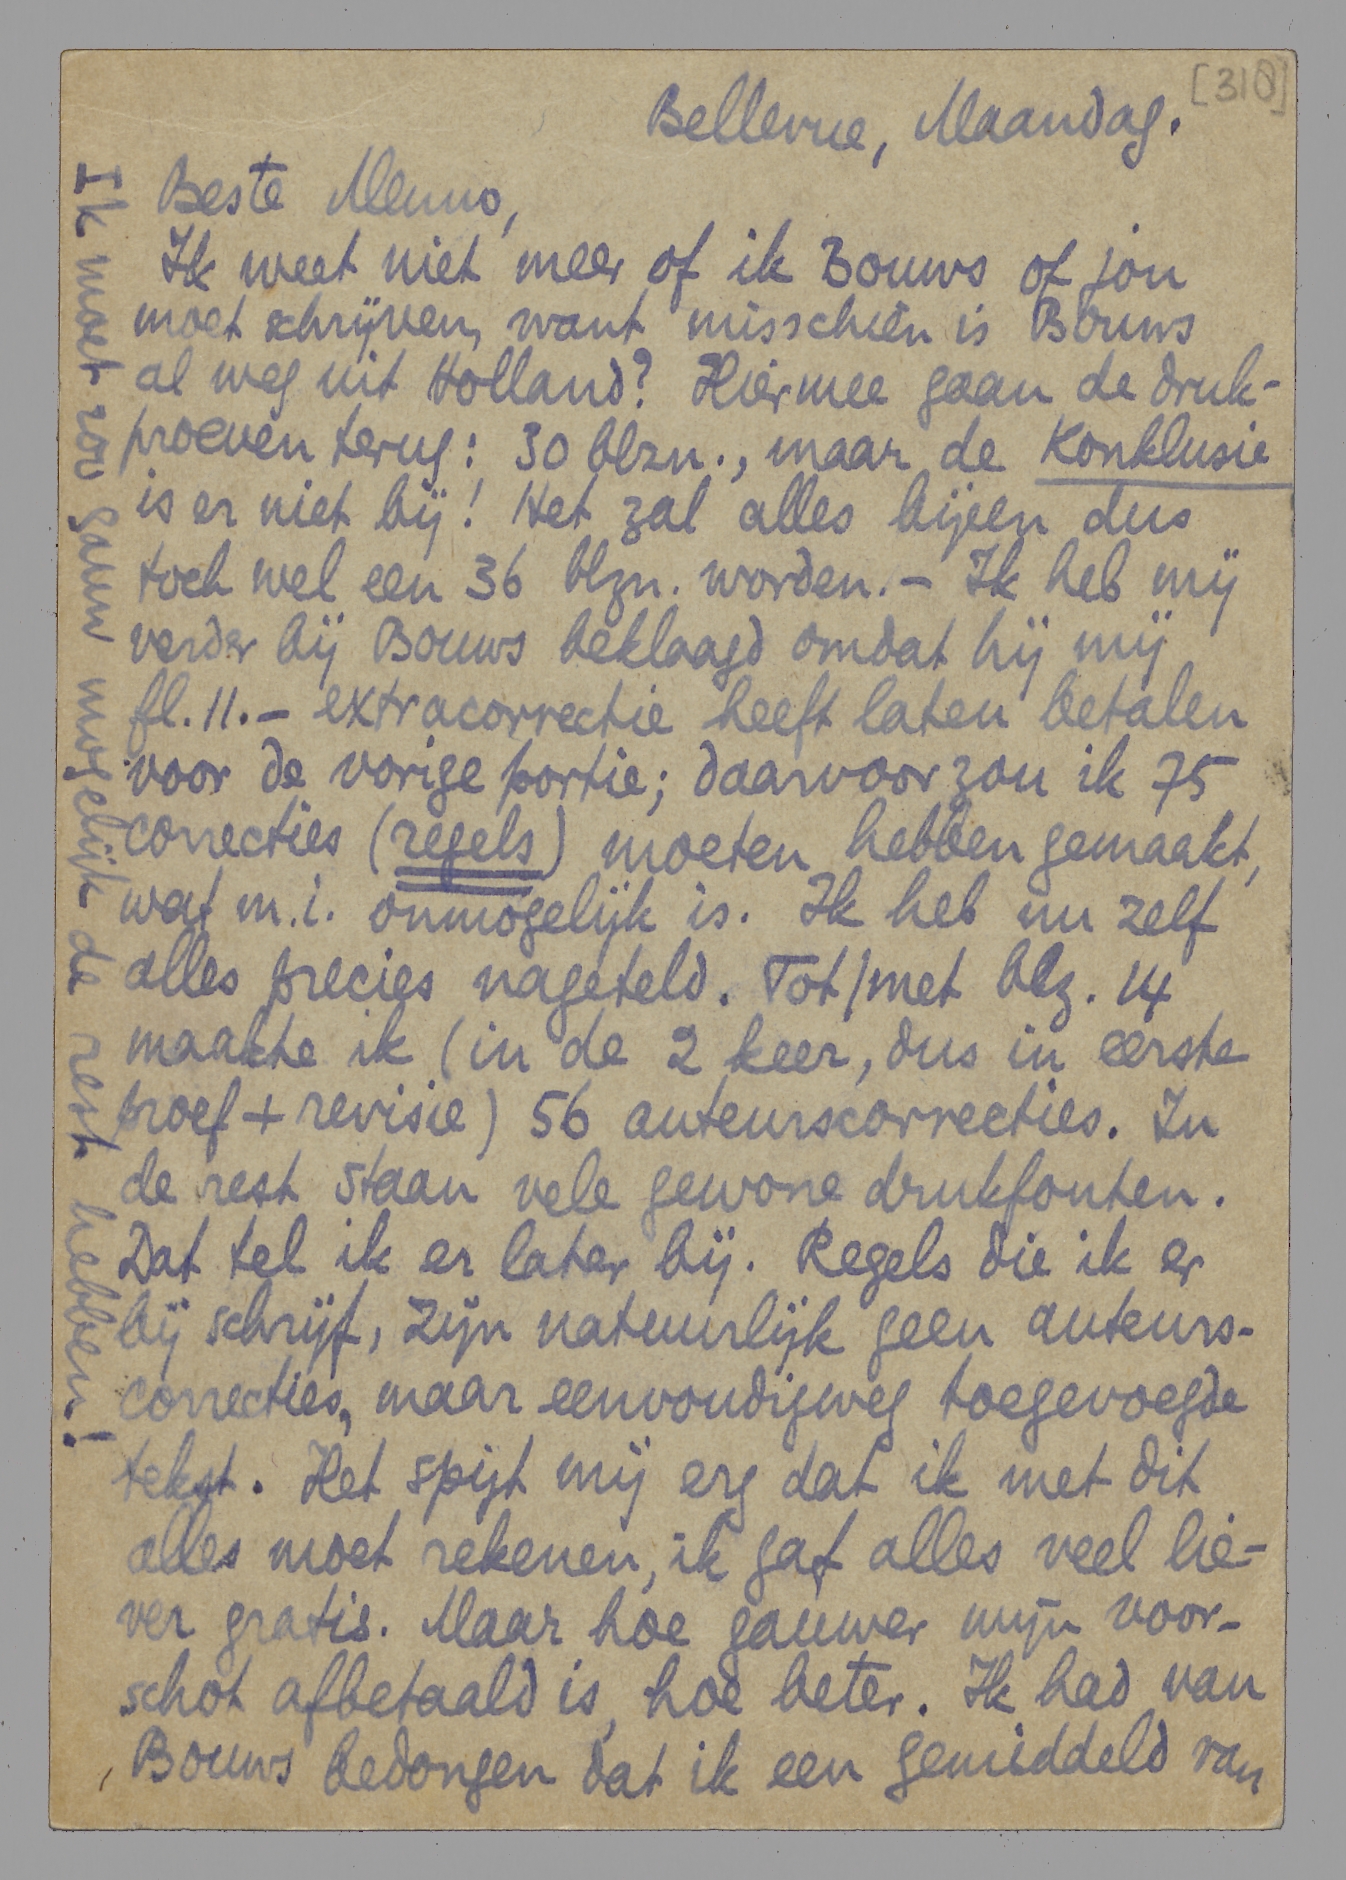 [318]
Bellevue, Maandag.
Beste Menno,
Ik weet niet meer of ik Bouws of jou
moet schrijven, want misschien is Bouws
al weg uit Holland? Hiermee gaan de druk-
proeven terug: 30 blzn., maar de Konklusie
is er niet bij! Het zal alles bijeen dus
toch wel een 36 blzn. worden. – Ik heb mij
verder bij Bouws beklaagd omdat hij mij
fl. 11. – extracorrectie heeft laten betalen
voor de vorige portie; daarvoor zou ik 75
correcties (regels) moeten hebben gemaakt,
wat m.i. onmogelijk is. Ik heb nu zelf
alles precies nageteld. Tot/met blz. 14
maakte ik (in de 2 keer, dus in eerste
proef + revisie) 56 auteurscorrecties. In
de rest staan vele gewone drukfouten.
Dat tel ik er later bij. Regels die ik er
bij schrijf, zijn natuurlijk geen auteurs-
correcties, maar eenvoudigweg toegevoegde
tekst. Het spijt mij erg dat ik met dit
alles moet rekenen, ik gaf alles veel lie-
ver gratis. Maar hoe gauwer mijn voor-
schot afbetaald is, hoe beter. Ik had van
Bouws bedongen dat ik een gemiddeld van
Ik moet zoo gauw mogelijk de rest hebben!